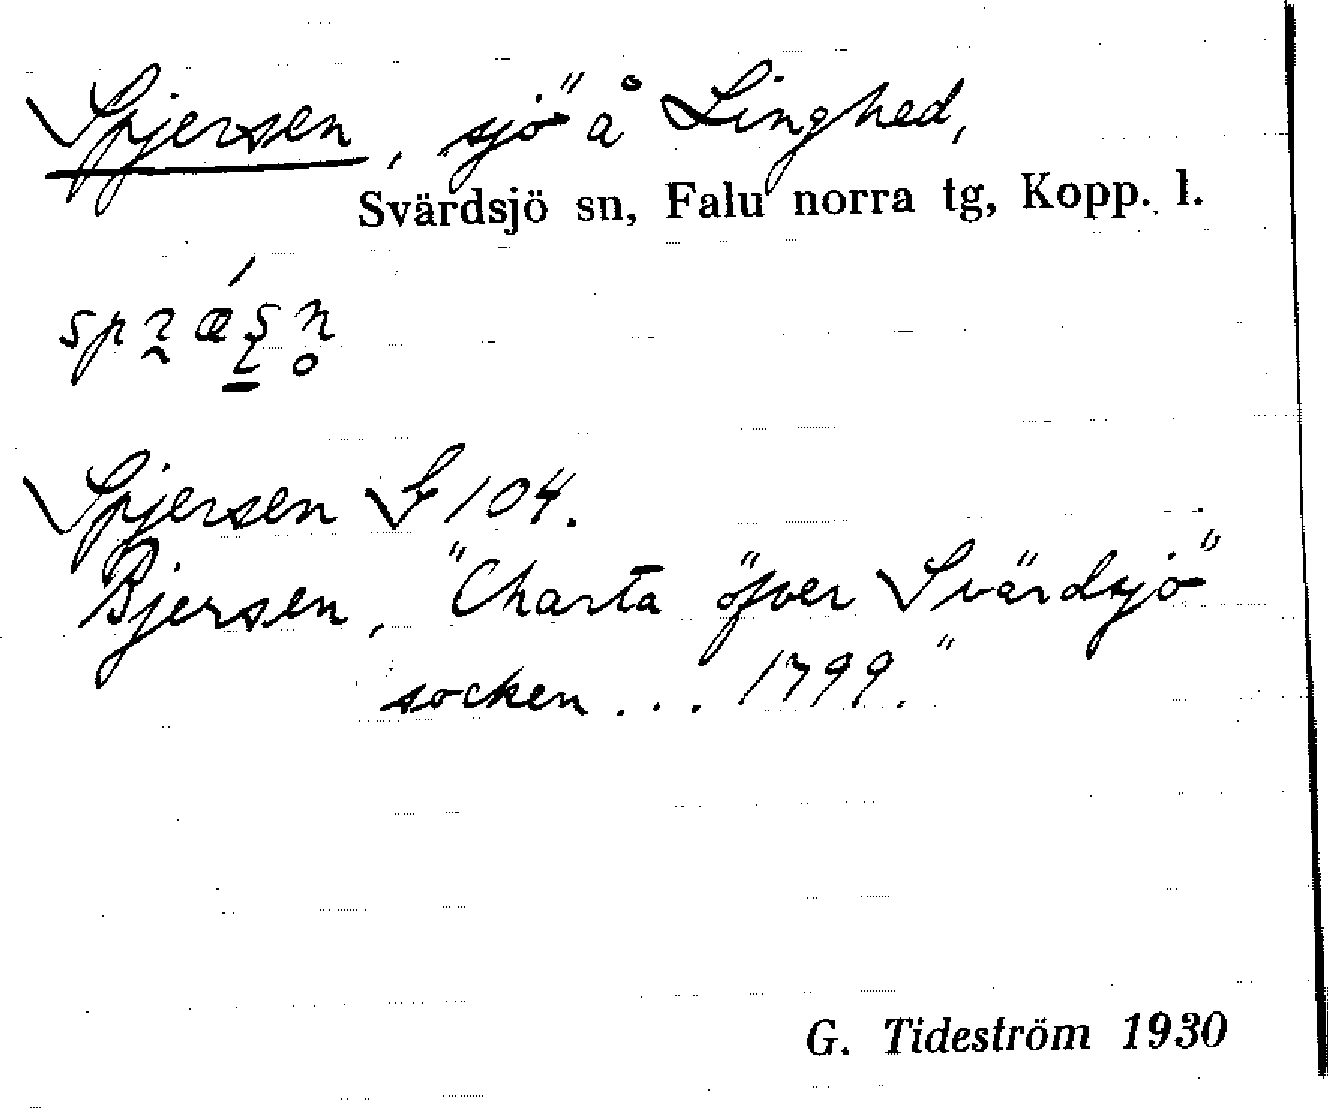 Spjersen, sjö å Linghed,
Svärdsjö sn, Falu norra tg, Kopp. l.
Spjersen G 104.
Bjersen, "Charta öfver Svärdsjö"
socken ... 1799."
G. Tideström 1930